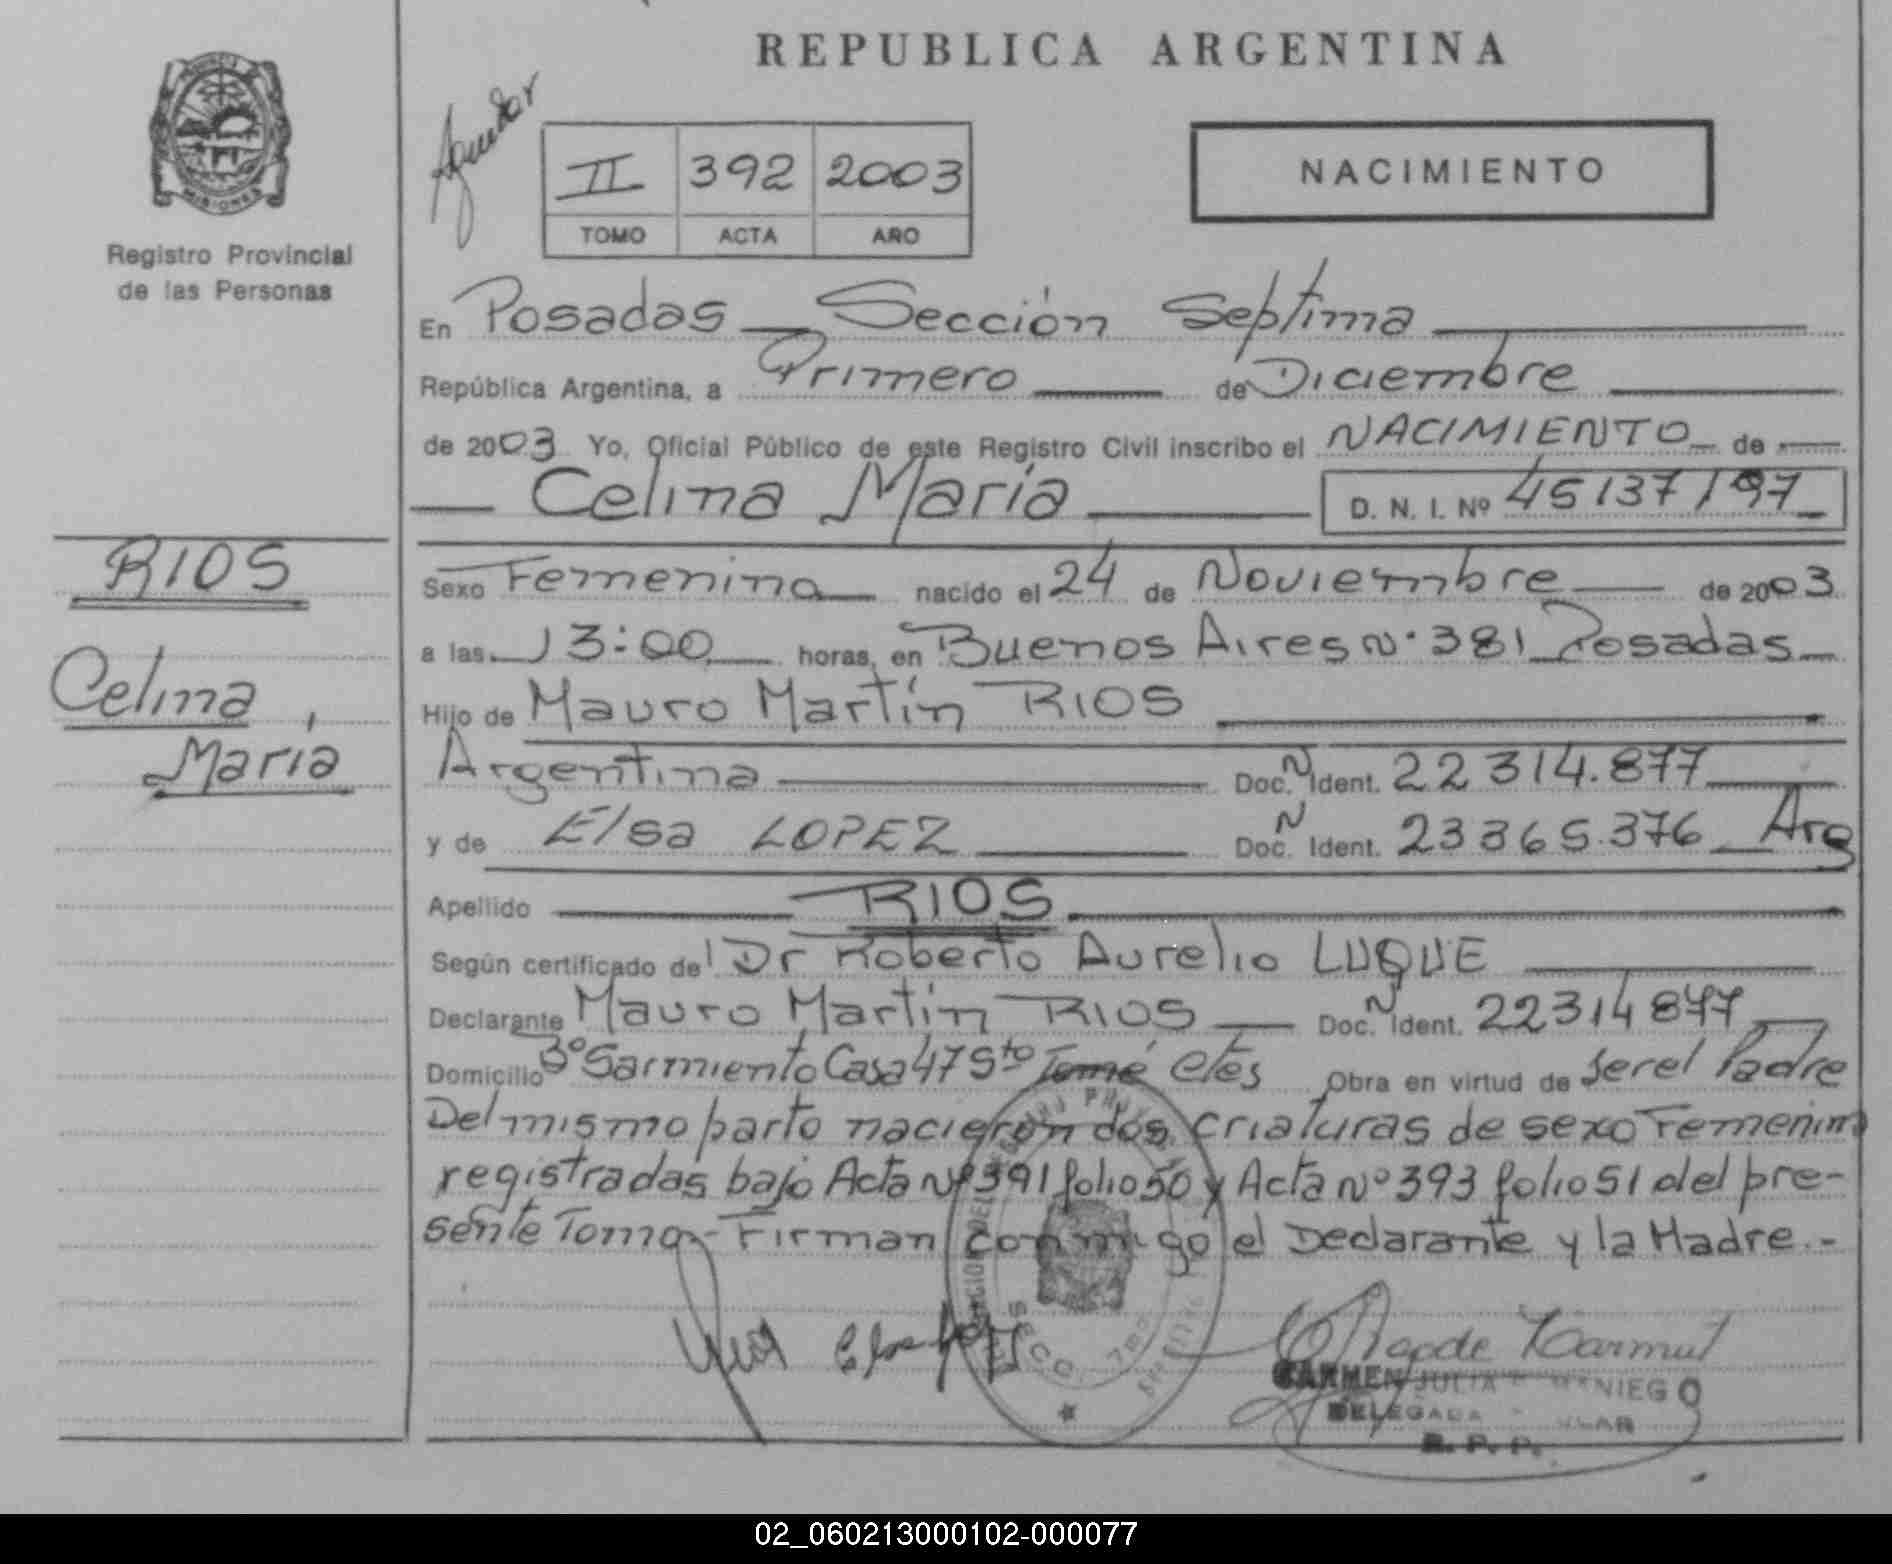 REPUBLICA ARGENTINA
MISIONES
Registro Provincial
de las Personas
II 392 2003
TOMO ACTA AÑO
NACIMIENTO
En Posadas — Sección Septima
República Argentina, a Primero de Diciembre
de 2003 Yo, Oficial Público de este Registro Civil inscribo el NACIMIENTO de
Celina María D. N. I. Nº 45137197
RIOS
Celina,
María
Sexo Femenino nacido el 24 de Noviembre de 2003
a las 13:00 horas, en Buenos Aires Nº 381 Posadas
Hijo de Mauro Martín RIOS
Argentina Doc. N Ident. 22 314.877
y de Elsa LOPEZ Doc. N Ident. 23365.376 Arg
Apellido RIOS
Según certificado de Dr Roberto Aurelio LUQUE
Declarante Mauro Martín RIOS Doc. N Ident. 22314877
Domicilio Bº Sarmiento Casa 47 Sto Tomé Ctes Obra en virtud de ser el Padre
Del mismo parto nacieron dos criaturas de sexo Femenino
registradas bajo Acta Nº 391 folio 50 y Acta Nº 393 folio 51 del pre-
sente Tomo - Firman conmigo el Declarante y la Madre.-
CARMEN JULIA
DELEGADA
R. P. P.
02_060213000102-000077